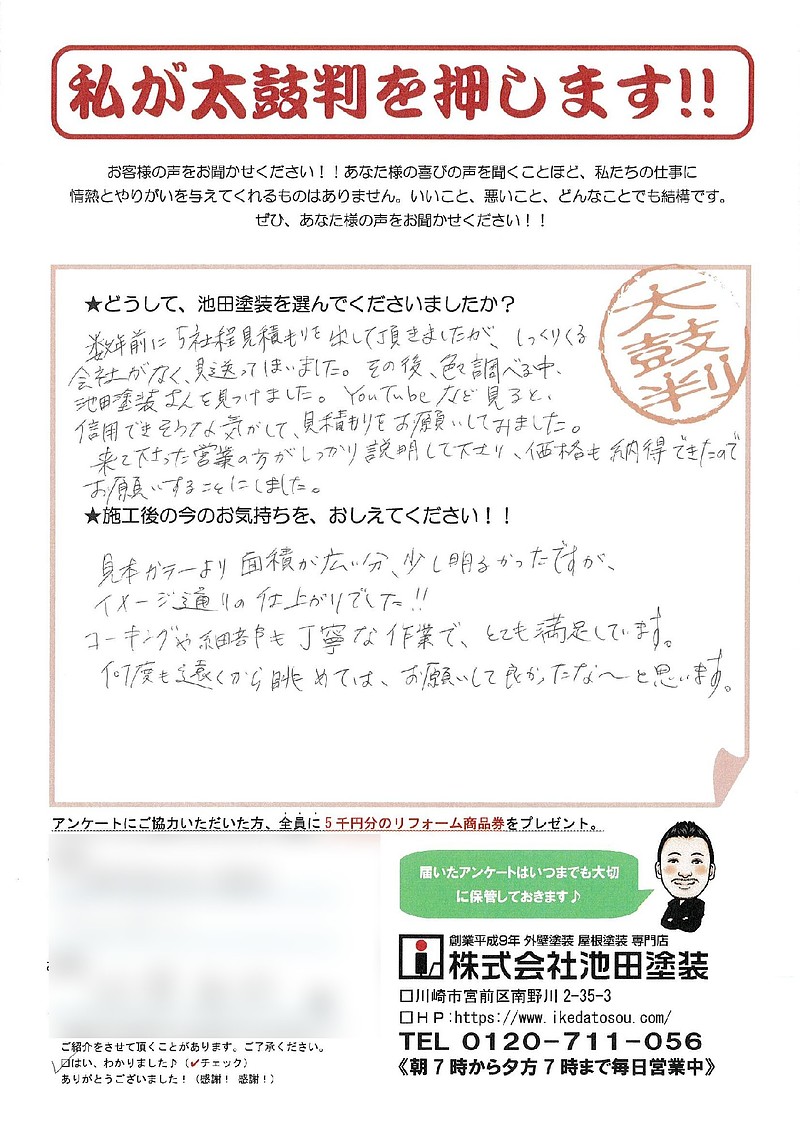 私が太鼓判を押します!!
お客様の声をお聞かせください！！あなた様の喜びの声を聞くことほど、私たちの仕事に
情熱とやりがいを与えてくれるものはありません。いいこと、悪いこと、どんなことでも結構です。
ぜひ、あなた様の声をお聞かせください！！
太鼓判
★どうして、池田塗装を選んでくださいましたか？
数年前に5社程見積もりを出して頂きましたが、しっくりくる
会社がなく、見送ってしまいました。その後、色々調べる中、
池田塗装さんを見つけました。YouTubeなど見ると、
信用できそうな気がして、見積もりをお願いしてみました。
来て下さった営業の方がしっかり説明して下さり、価格も納得できたので
お願いすることにしました。
★施工後の今のお気持ちを、おしえてください！！
見本カラーより面積が広い分、少し明るかったですが、
イメージ通りの仕上がりでした!!
コーキングや細部も丁寧な作業で、とても満足しています。
何度も遠くから眺めては、お願いして良かったな〜と思います。
アンケートにご協力いただいた方、全員に5千円分のリフォーム商品券をプレゼント。
届いたアンケートはいつまでも大切
に保管しておきます♪
創業平成9年 外壁塗装 屋根塗装 専門店
株式会社池田塗装
□川崎市宮前区南野川2-35-3
□ＨＰ:https://www.ikedatosou.com/
TEL 0120-711-056
《朝7時から夕方7時まで毎日営業中》
ご紹介をさせて頂くことがあります。ご了承ください。
□はい、わかりました♪（✔チェック）
ありがとうございました！（感謝！感謝！）